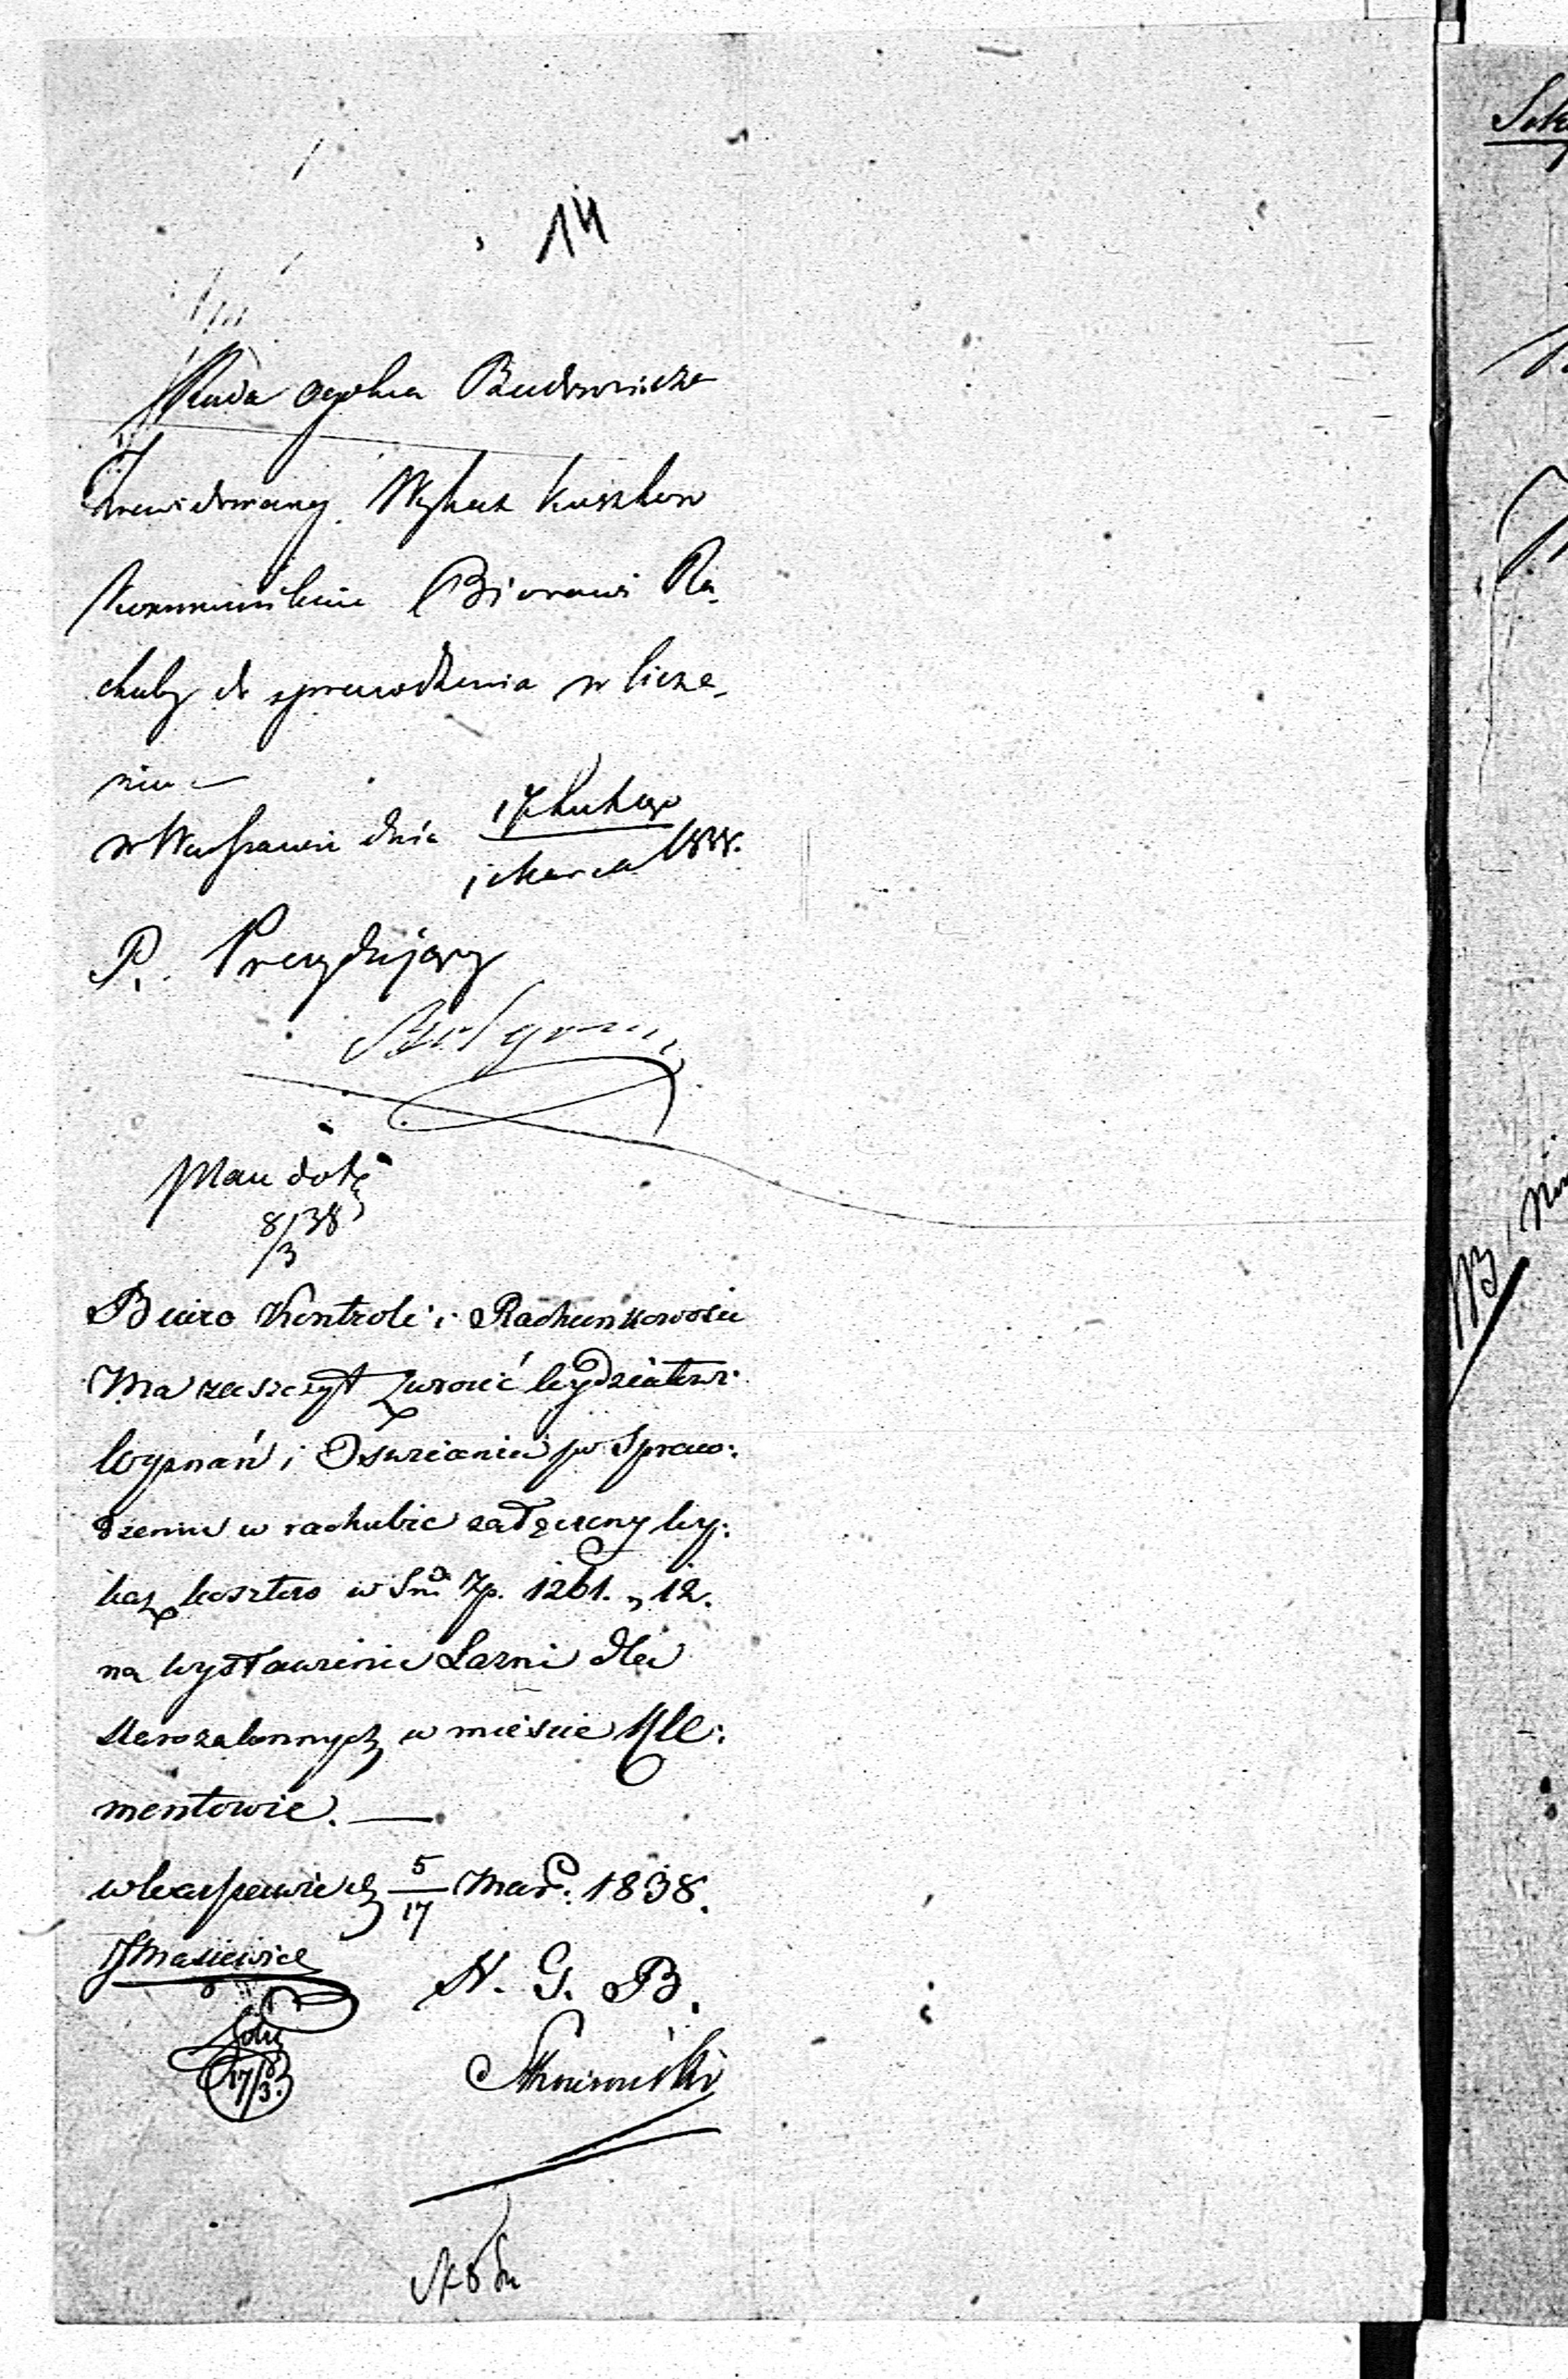 14
Rada ogólna Budownicza
zrewidowany Wykaz kosztów
Biorowi Ra-
chuby do sprawdzenia w licze-
niu —
w Warszawie dnia 17 Lutego
1 Marca 1838.
P. Prezydujący
8/3 38
Biuro Kontroli i Rachunkowości
Ma zaszczyt zwrócić Wydziałowi
Wyznań i Oświecenia po spraw:
dzeniu w rachubie załączony wy:
kaz kosztów w Smie Zp. 1261. „ 12.
na wystawienie Łazni dla
starozakonnych w mieście Kli:
mentowie. —
w Warszawie d 5/17 Mar: 1838.
N. G. B.
17/3